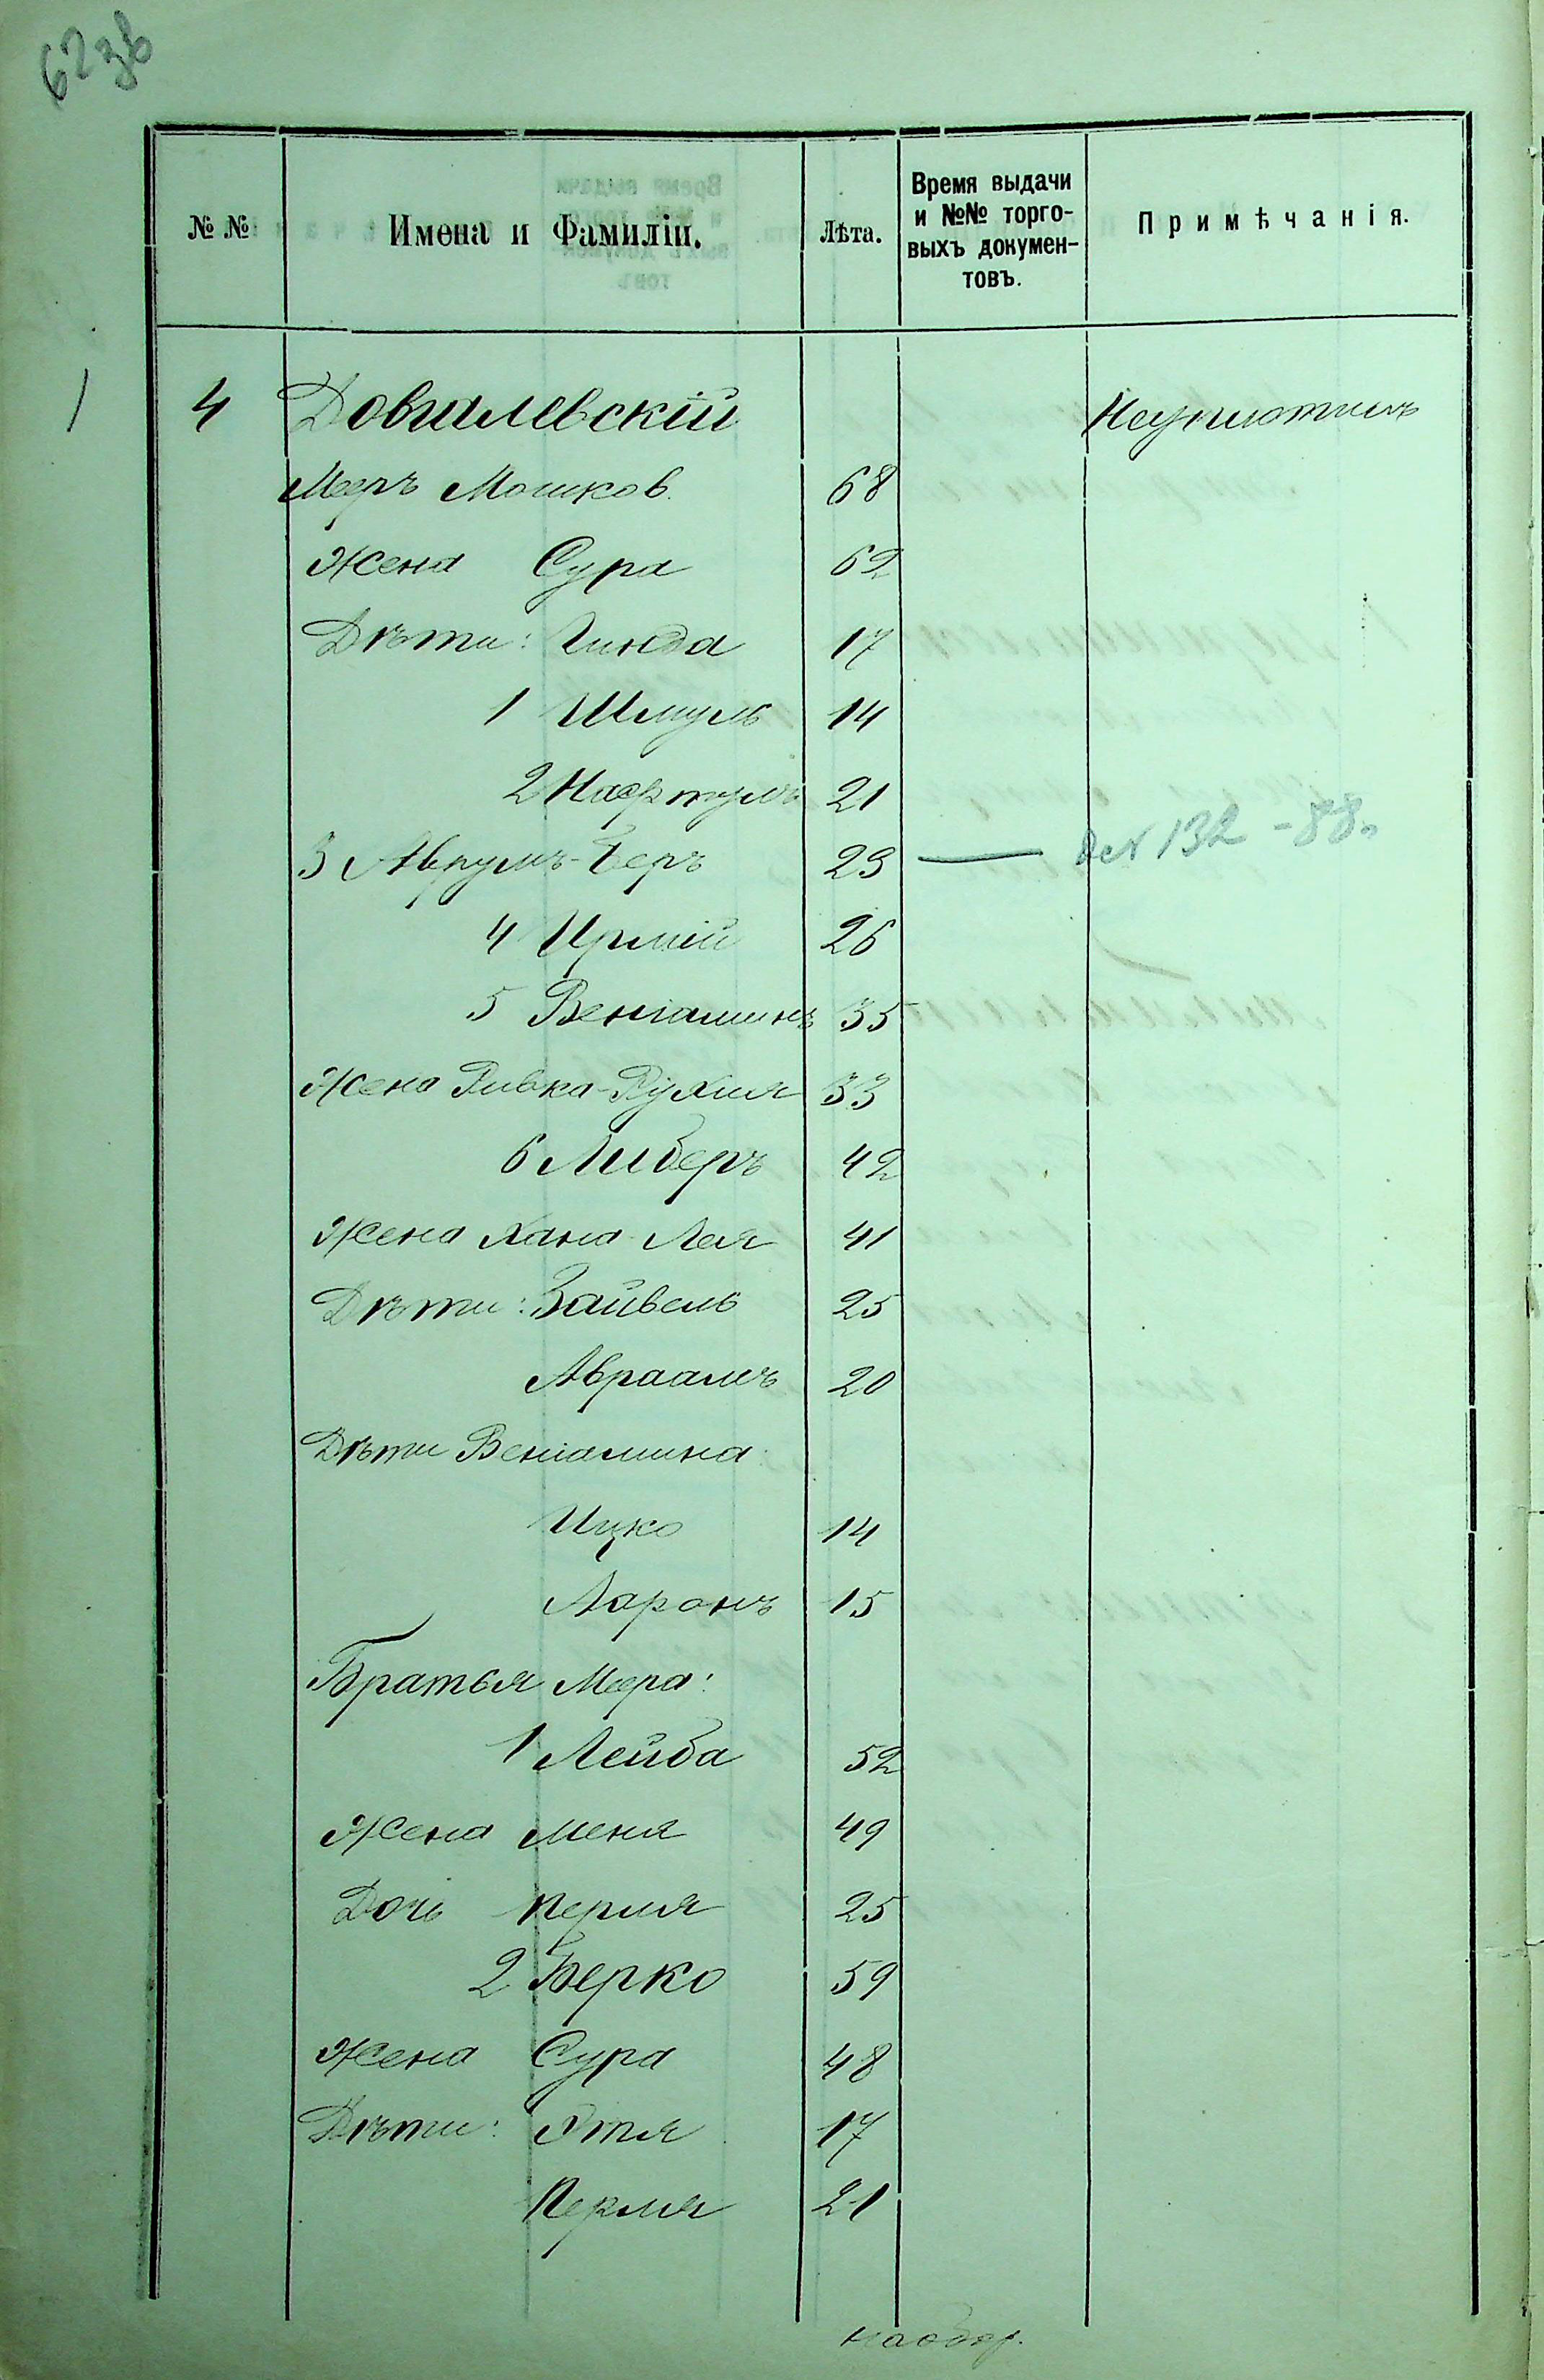 623в
№ №
Имена и Фамиліи.
Лѣта.
Время выдачи
и №№ торго-
выхъ докумен-
товъ.
Примѣчанія.
1 4 Довгалевскій Неуплотилъ
Меръ Мошков. 68
Жена Сура 62
Дѣти: Гинда 17
1 Шмуль 14
2 21
3 Аврумъ-Беръ 29 — 132 - 88.
4 26
5 Веніаминъ 35
Жена Ривка-Рухля 33
6 Либеръ 42
Жена Хана Лея 41
Дѣти: Зайвель 25
Авраамъ 20
Дѣти Веніамина:
Ицко 14
Ааронъ 15
Братья Меера:
1 Лейба 52
Жена Меня 49
Дочь Перля 25
2 Берко 59
Жена Сура 48
Дѣти: Этля 17
Перля 21
на обор.